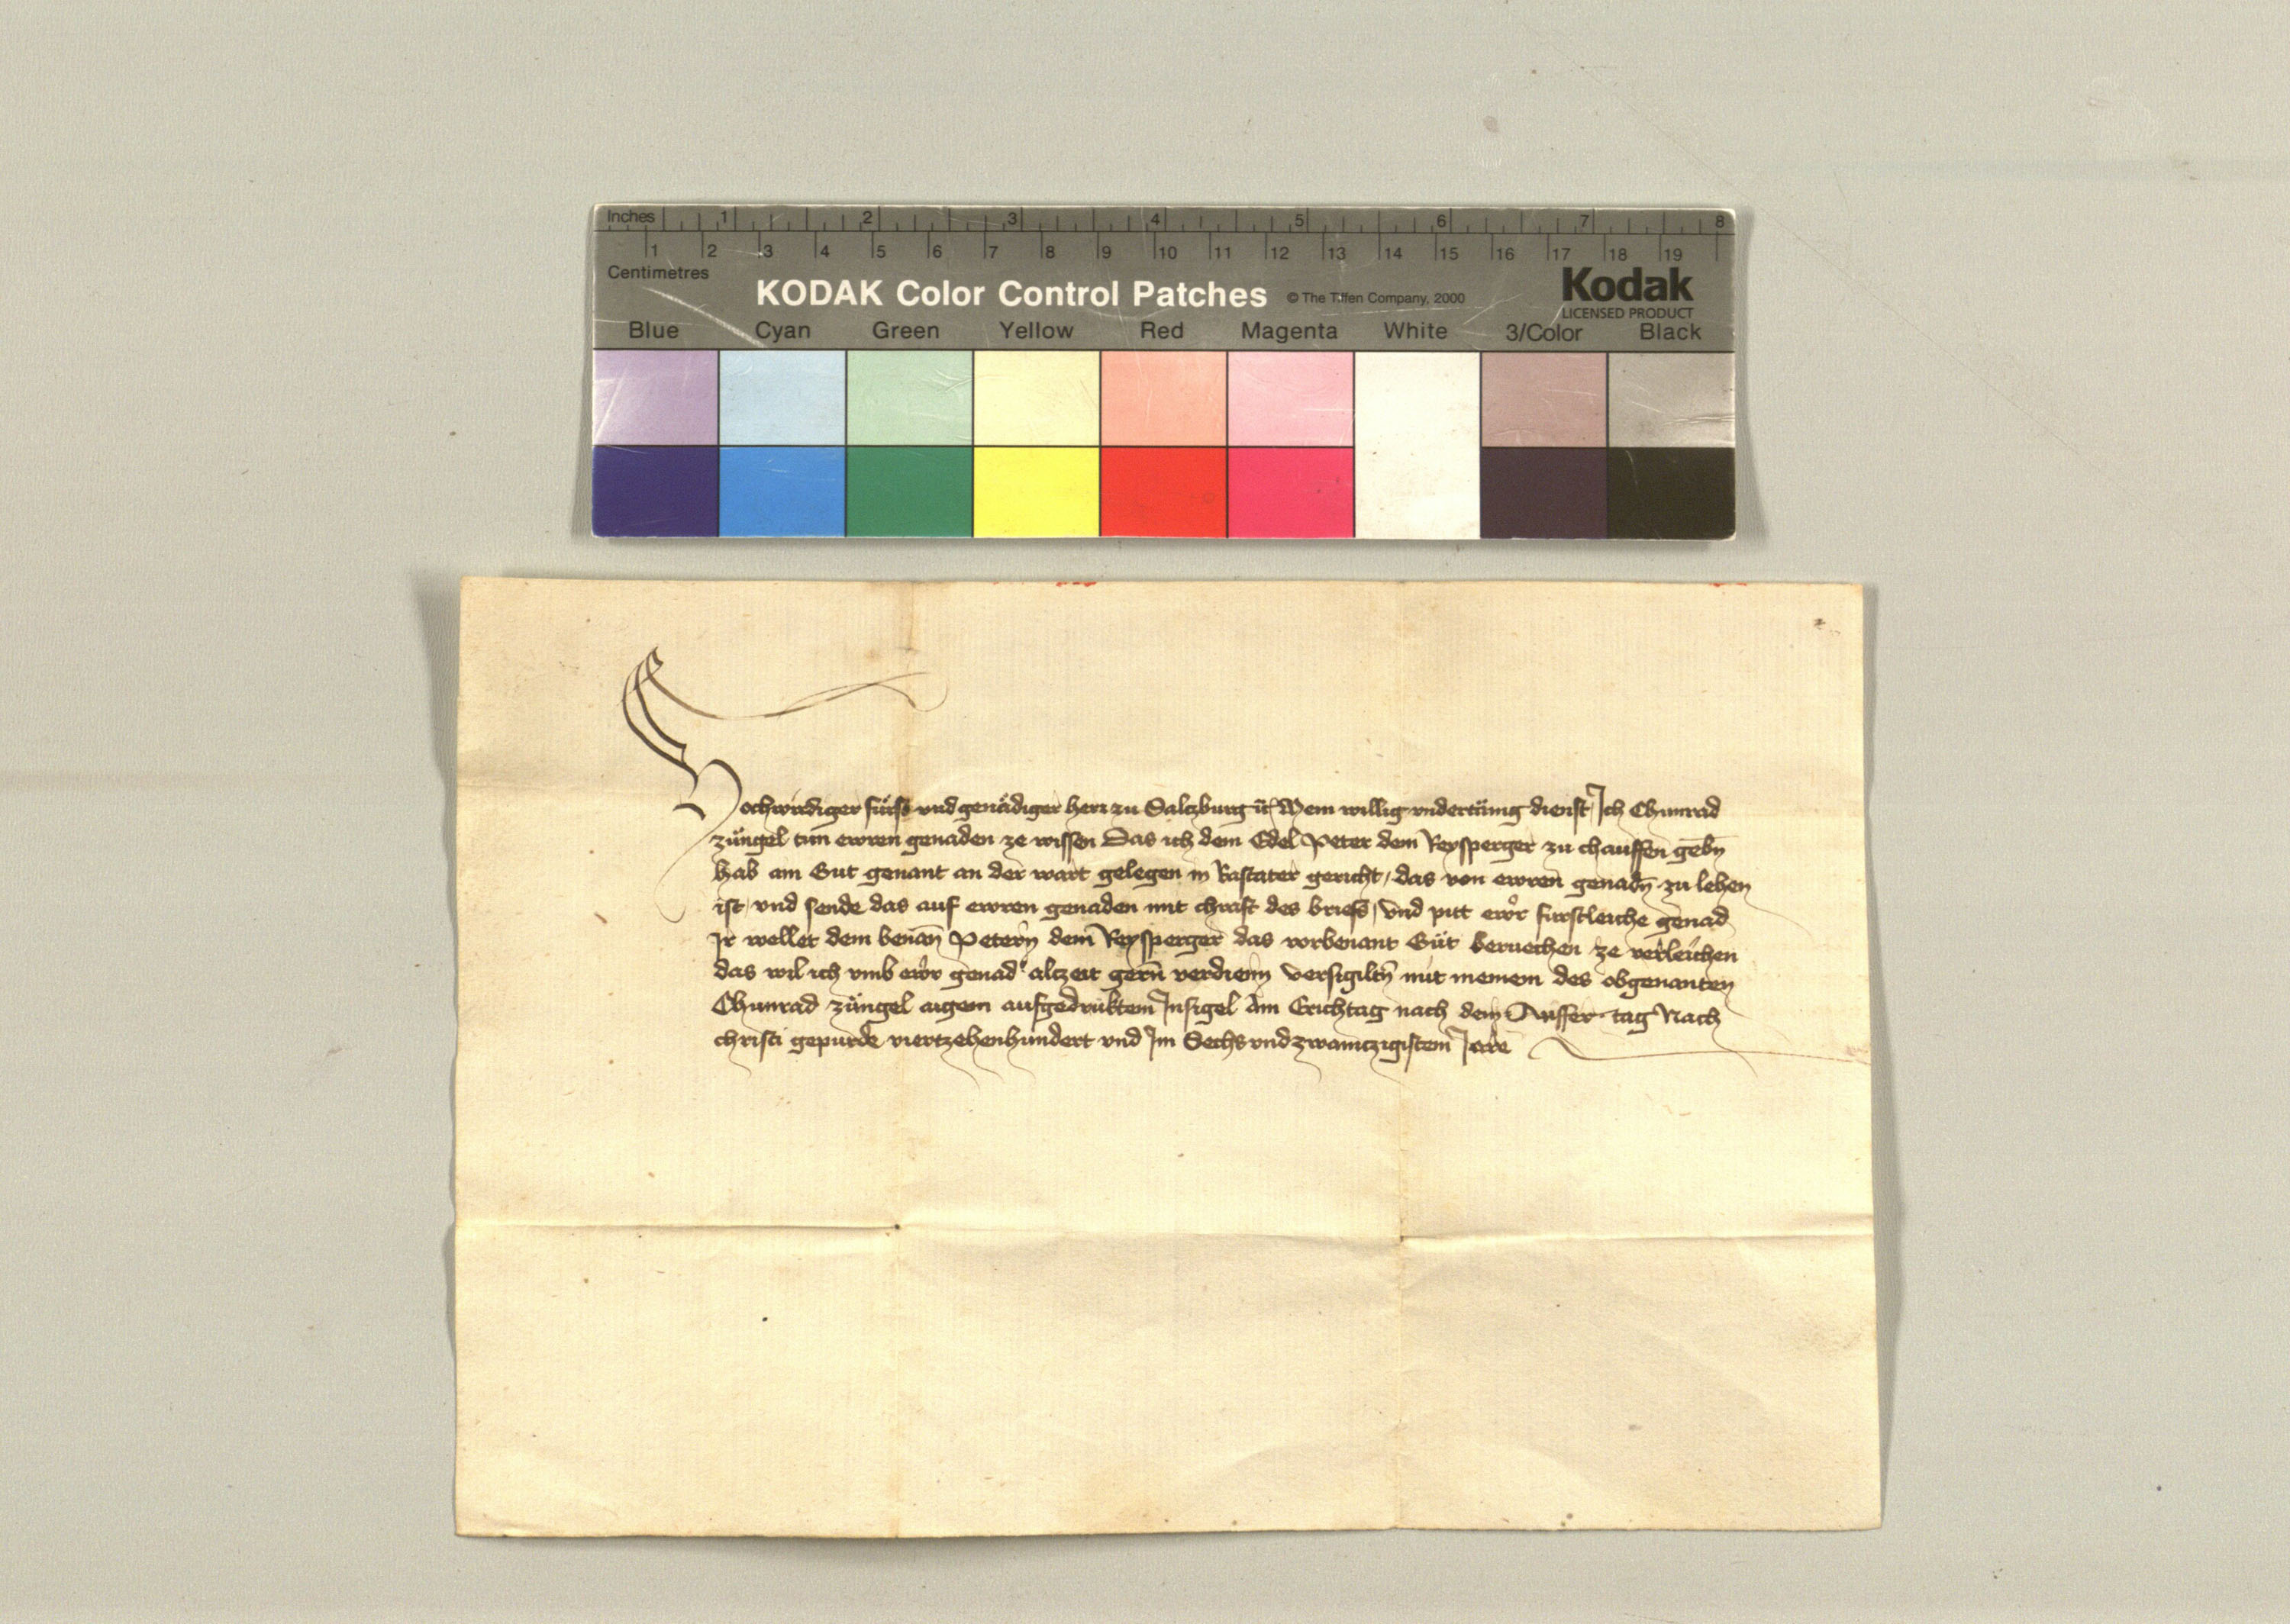 Inches 1 2 3 4 5 6 7 8
1 2 3 4 5 6 7 8 9 10 11 12 13 14 15 16 17 18 19
Centimetres
KODAK Color Control Patches © The Tiffen Company, 2000 Kodak
LICENSED PRODUCT
Blue Cyan Green Yellow Red Magenta White 3/Color Black
Hochwirdiger fürst vnd genädiger herr zu Salczburg Mein willig vndertänig dienst Ich Chunrad
züngel tun ewren genaden ze wissen Das ich dem Edel Peter dem Reysperger zu chauffen gebn̄
hab ain Gut genant an der wart gelegen in Rastater gericht, das von ewren genadn̄ zu lehen
ist, vnd sende das auf ewren genaden mit chraft des briefs, vnd pitt ewr fürstleiche genad
Ir wellet dem benan̄ Petern dem Reysperger das vorbenant Güt beruechen ze verleichen
das wil ich vmb ewr genad alczeit gern̄ verdienn versigiltn̄ mit meinem des obgenanten
Chunrad züngel aigem aufgedruktem Insigel Am Erichtag nach dem tag Nach
christi gepurde viertzehenhundert vnd Im Sechs vnd zwainczigistem Jare